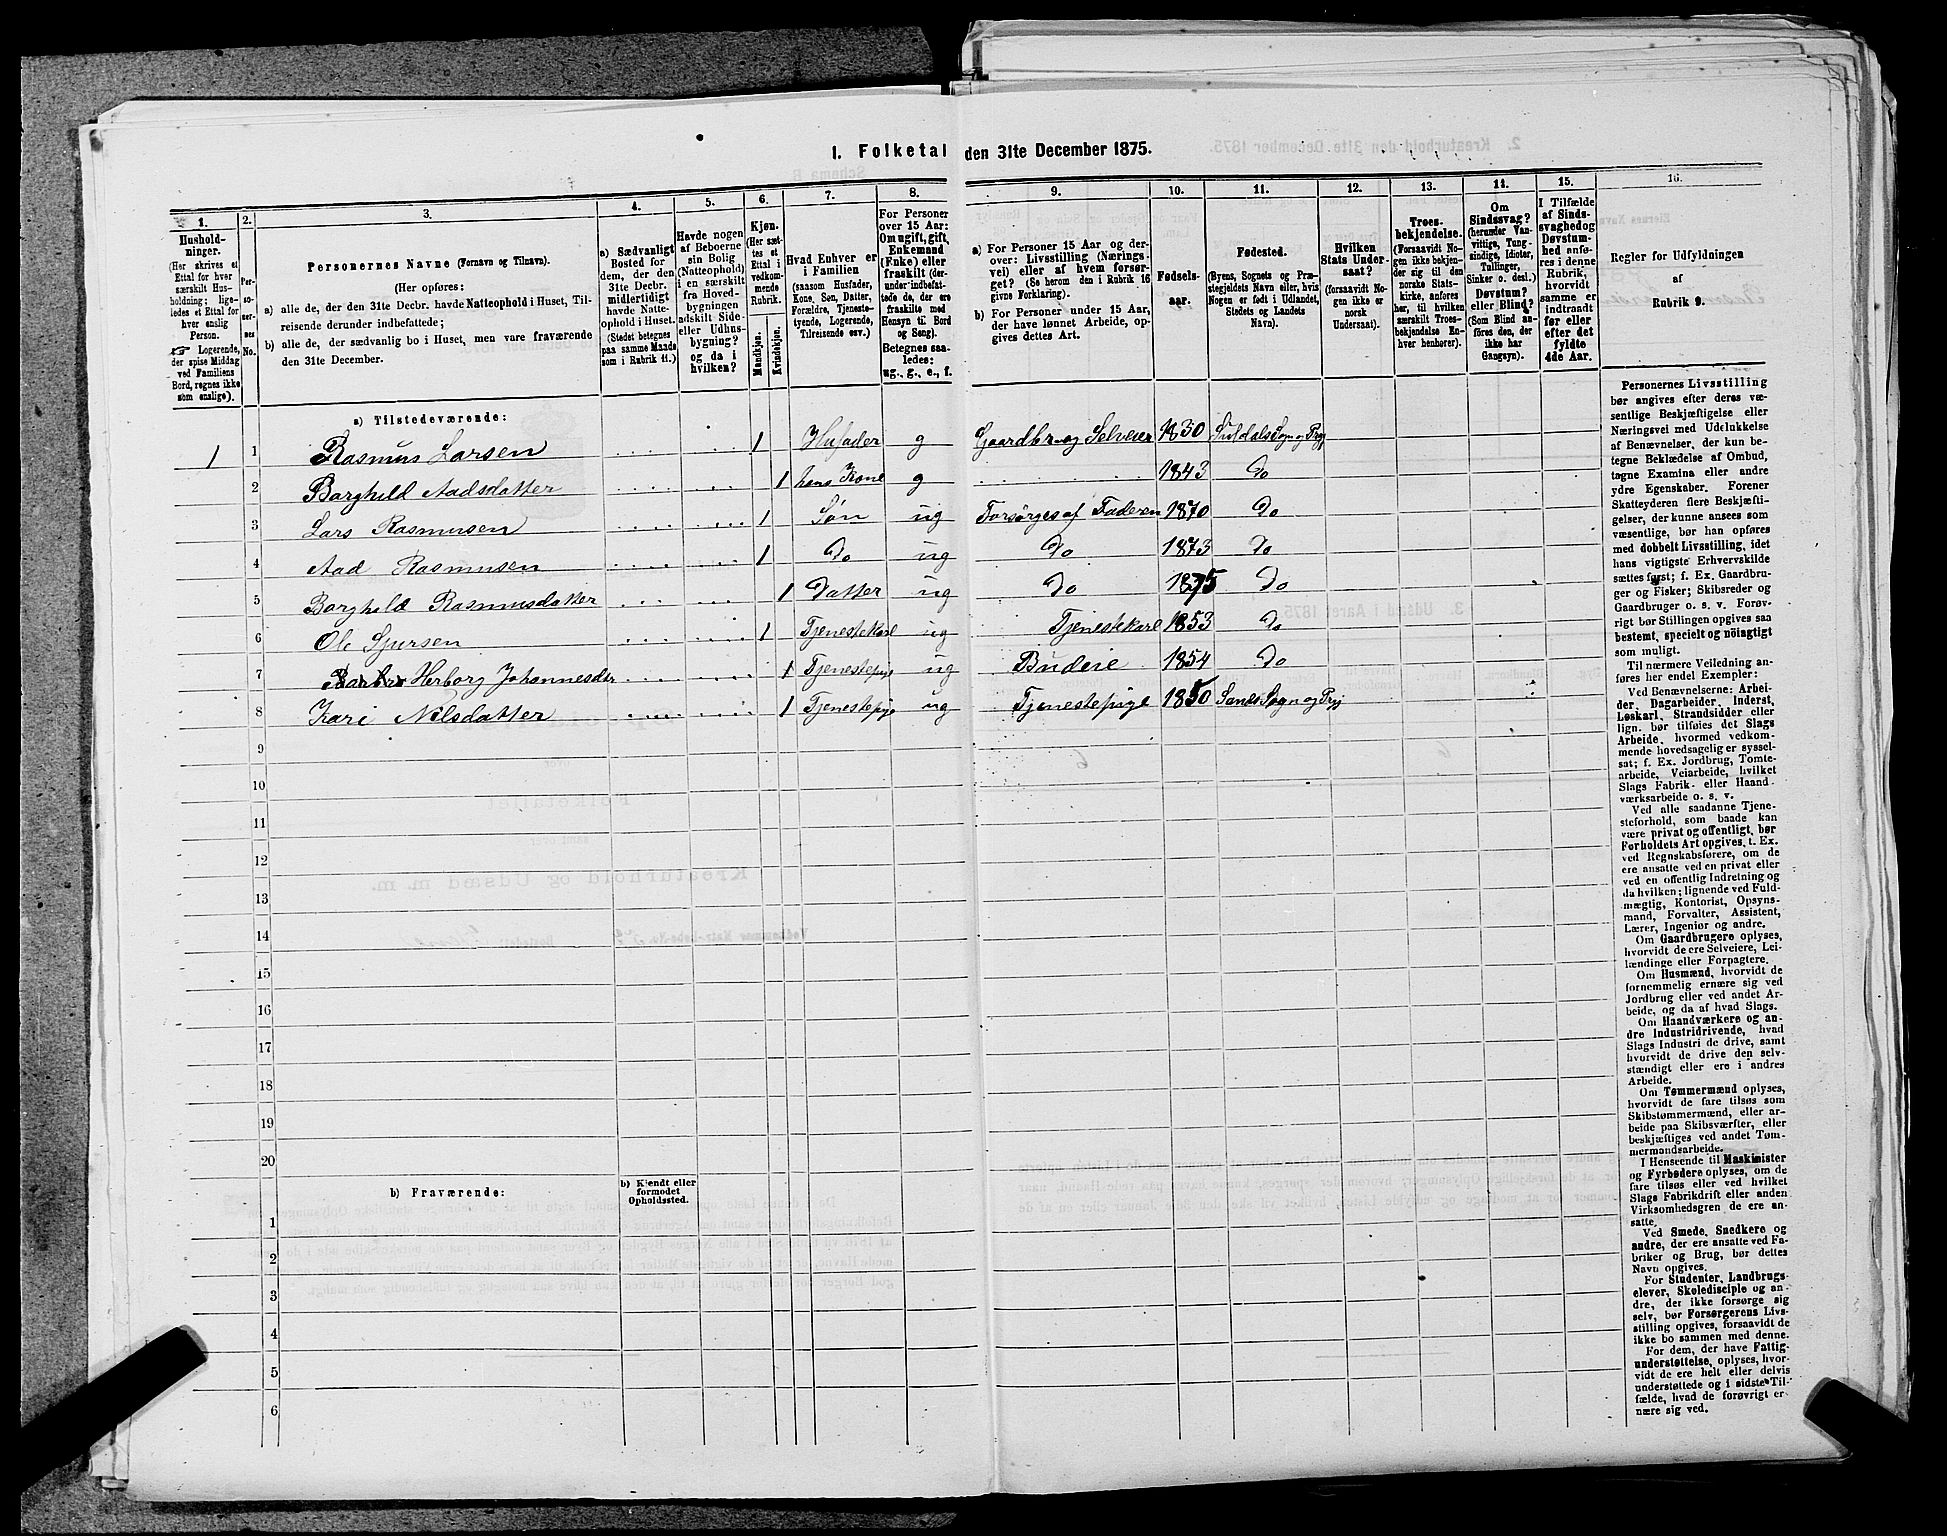 1. Folketal den 31te December 1875.
1. 2. 3. 4. 5. 6. 7. 8. 9. 10. 11. 12. 13. 14. 15. 16.
Hushold-
ninger.
(Her skrives et
Ettal for hver
særskilt Hus-
holdning; lige-
ledes et Ettal for
hver enslig
Person.
Logerende,
der spise Middag
ved Familiens
Bord, regnes ikke
som enslige).
Per-
so-
ner-
nes
No.
Personernes Navne (Fornavn og Tilnavn).
(Her opføres:
a) alle de, der den 31te Decbr. havde Natteophold i Huset, Til-
reisende derunder indbefattede;
b) alle de, der sædvanlig bo i Huset, men vare fraværende
den 31te December.
a) Sædvanligt
Bosted for
dem, der den
31te Decbr.
midlertidigt
havde Natte-
ophold i Huset.
(Stedet betegnes
paa samme Maade
som i Rubrik 11.)
Havde nogen
af Beboerne
sin Bolig
(Natteophold)
i en særskilt
fra Hoved-
bygningen
adskilt Side-
eller Udhus-
bygning?
og da i
hvilken?
Kjøn.
(Her sæt-
tes et
Ettal i
vedkom-
mende
Rubrik.
Mandkjøn.
Kvindekjøn.
Hvad Enhver er
i Familien
(saasom Husfader,
Kone, Søn, Datter,
Forældre, Tjeneste-
tyende, Logerende,
Tilreisende osv.)
For Personer
over 15 Aar:
Om ugift, gift,
Enkemand
(Enke) eller
fraskilt (der-
under indbefat-
tede de, der ere
fraskilte med
Hensyn til Bord
og Seng).
Betegnes saa-
ledes:
ug., g., e., f.
a) For Personer 15 Aar og der-
over: Livsstilling (Nærings-
vei) eller af hvem forsør-
get? (Se herom den i Rubrik 16
givne Forklaring).
b) For Personer under 15 Aar,
der have lønnet Arbeide, op-
gives dettes Art.
Fødsels-
aar.
Fødested.
(Byens, Sognets og Præ-
stegjeldets Navn eller, hvis
Nogen er født i Udlandet,
Stedets og Landets
Navn).
Hvilken
Stats Under-
saat?
(forsaavidt No-
gen ikke er
norsk
Undersaat).
Troes-
bekjendelse.
(Forsaavidt No-
gen ikke bekjen-
der sig til den
norske Stats-
kirke, anføres
her, til hvilken
særskilt Troes-
bekjendelse En-
hver henhører).
Om
Sindssvag?
(herunder Van-
vittige, Tung-
sindige, Idioter,
Tullinger,
Sinker o. desl.)
Døvstum?
eller Blind?
(Som Blind an-
føres den, der
ikke har
Gangsyn).
I Tilfælde
af Sinds-
svaghed og
Døvstum-
hed anfø-
res i denne
Rubrik,
hvorvidt
samme er
indtraadt
før eller
efter det
fyldte
4de Aar.
Regler for Udfyldningen
af
Rubrik 9.
a) Tilstedeværende:
1 1 Rasmus Larsen 1 Husfader g Gaardbr og Selveier 1830 Suldals Sogn og Prgj
2 Borghild Aadsdatter 1 hans Kone g 1843 Do
3 Lars Rasmusen 1 Søn ug Forsørges af Faderen 1870 Do
4 Aad Rasmusen 1 Do ug Do 1873 Do
5 Borghild Rasmusdatter 1 Datter ug Do 1875 Do
6 Ole Sjursen 1 Tjenestekarl ug Tjenestekarl 1853 Do
7 Herborg Johannesdtr 1 Tjenestepige ug Budeie 1854 Do
8 Kari Nilsdatter 1 Tjenestepige ug Tjenestepige 1850 Sands Sogn og Prgj
9
10
11
12
13
14
15
16
17
18
19
20
b) Fraværende:
b) Kjendt eller
formodet
Opholdssted.
1
2
3
4
5
6
Personernes Livsstilling
bør angives efter deres væ-
sentlige Beskjæftigelse eller
Næringsvei med Udelukkelse
af Benævnelser, der kun be-
tegne Beklædelse af Ombud,
tagne Examina eller andre
ydre Egenskaber. Forener
Skatteyderen flere Beskjæfti-
gelser, der kunne ansees som
væsentlige, bør han opføres
med dobbelt Livsstilling, idet
hans vigtigste Erhvervskilde
sættes først; f. Ex. Gaardbru-
ger og Fisker; Skibsreder og
Gaardbruger o. s. v. Forøv-
rigt bør Stillingen opgives saa
bestemt, specielt og nøiagtigt
som muligt.
Til nærmere Veiledning an-
føres her endel Exempler:
Ved Benævnelserne: Arbei-
der, Dagarbeider, Inderst,
Løskarl, Strandsidder eller
lign. bør tilføies det Slags
Arbeide, hvormed vedkom-
mende hovedsagelig er syssel-
sat; f. Ex. Jordbrug, Tomte-
arbeide, Veiarbeide, hvilket
Slags Fabrik- eller Haand
værksarbeide o. s. v.
Ved alle saadanne Tjene-
steforhold, som baade kan
være privat og offentligt, bør
Forholdets Art opgives, t. Ex.
ved Regnskabsførere, om de
ere ansatte ved en privat eller
ved en offentlig Indretning og
da hvilken; lignende ved Fuld-
mægtig, Kontorist, Opsyns-
mand, Forvalter, Assistent,
Lærer, Ingeniør og andre.
Om Gaardbrugere oplyses,
hvorvidt de ere Selveiere, Lei-
lændinge eller Forpagtere.
Om Husmænd, hvorvidt de
fornemmelig ernære sig ved
Jordbrug eller ved andet Ar-
beide, og da af hvad Slags.
Om Haandværkere og an-
dre Industridrivende, hvad
Slags Industri de drive, samt
hvorvidt de drive den selv-
stændigt eller ere i andres
Arbeide.
Om Tømmermænd oplyses,
hvorvidt de fare tilsøs som
Skibstømmermænd, eller ar-
beide paa Skibsværfter, eller
beskjæftiges ved andet Tøm-
mermandsarbeide.
I Henseende til Maskinister
og Fyrbødere oplyses, om de
fare tilsøs eller ved hvilket
Slags Fabrikdrift eller anden
Virksomhedsgren de ere an-
satte.
Ved Smede, Snedkere og
andre, der ere ansatte ved Fa-
briker og Brug, bør dettes
Navn opgives.
For Studenter, Landbrugs-
elever, Skoledisciple og an-
dre, der ikke forsørge sig
selv, bør Forsørgerens Livs-
stilling opgives, forsaavidt de
ikke bo sammen med denne.
For dem, der have Fattig-
understøttelse, oplyses, hvor-
vidt de ere helt eller delvis
understøttede og i sidste Til-
fælde, hvad de forøvrigt er-
nære sig ved.